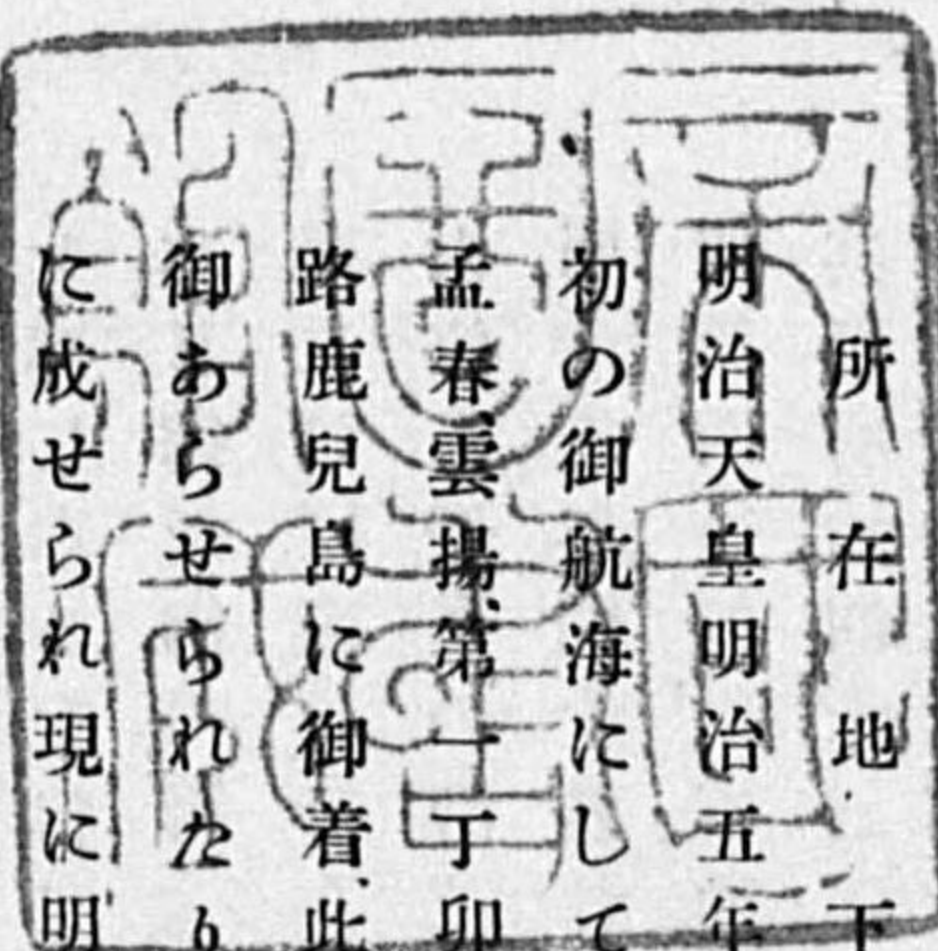 所在地下
明治天皇明治五年
初の御航海にして
孟春、雲揚、第一丁卯
路鹿兒島に御着、此
御あらせられたり
に成せられ現に明